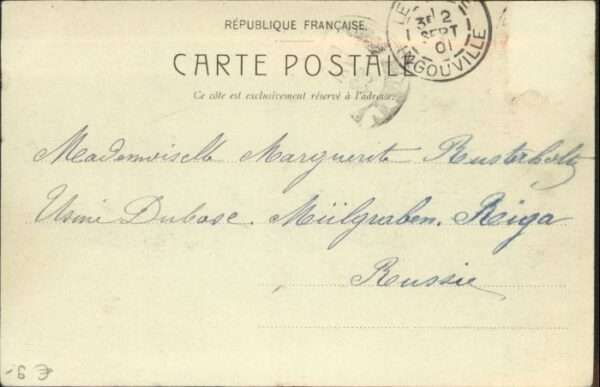 RÉPUBLIQUE FRANÇAISE
CARTE POSTALE
Ce côté est exclusivement réservé à l'adresse.
LE
3E 2
SEPT
01
GOUVILLE
Mademoiselle Marguerite Rusterholz
Usine Dubosc. Mülgraben. Reiga
Russie